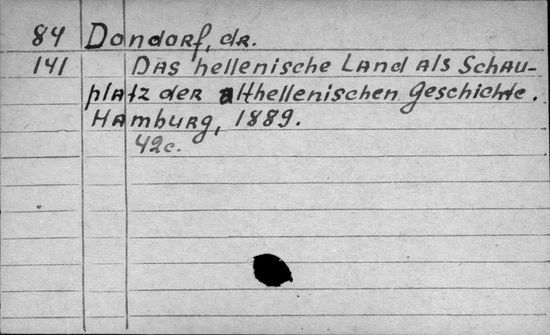 84 Dondorf, dr.
141 Das hellenische Land als Schau-
platz der althellenischen Geschichte.
Hamburg, 1889.
42c.